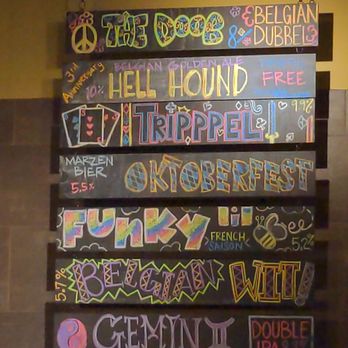 THE DOOB & BELGIAN
DUBBEL
3rd Anniversary
BELGIAN GOLDEN ALE
10%
HELL HOUND
FREE
TRIPPPEL!
9.9%
MARZEN
BIER
5.5%
OKTOBERFEST
FUNKY lil
FRENCH
SAISON
5.2%
5.7%
BELGIAN WIT!
GEMINII
DOUBLE
IPA